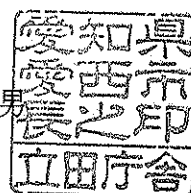 愛知県
愛西市
男
長之印
立田庁舎